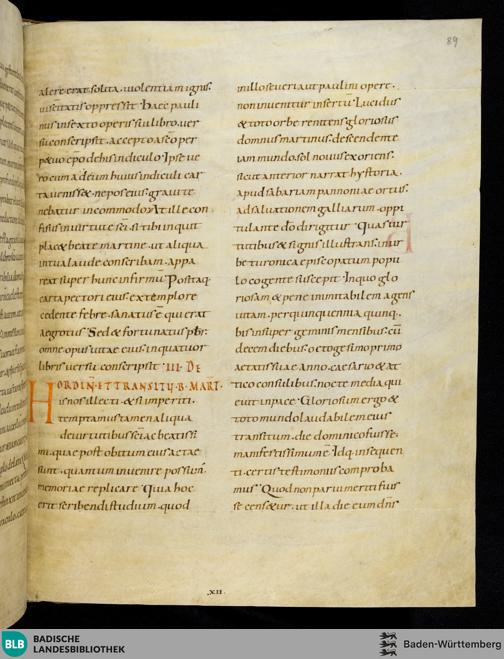 89
alere erat solita. uiolentiam ignis.
uiscitatis oppressit. Haec pauli
nus in sexto operis sui libro. uer
su conscripsit. accepto a seo per
p&uo epo de his indiculo. Ipse ue
ro cum adeum huius indiculi car
ta uenisset. nepos eius. grauite
nebatur incommodo. At ille con
fisus in uirtute sci. si tibi inquit
plac& beate martine. ut aliqua
in tua laude conscribam. appa
reat super hunc infirmū. Positaq.
carta pectori eius. extemplore
cedente febre. sanatus ē qui erat
aegrotus. Sed & fortunatus pbr.
omne opus uitae eius. in quattuor
libris uersu conscripsit. III. DE
ORDIN. ET TRANSITU. B. MART.
His nos illecti. & si imperiti.
temptamus tamen aliqua
de uirtutibus sci ac beatissi
mi. quae post obitum eius actae
sunt. quantum inuenire possum.
memoriae replicare. Quia hoc
erit scribendi studium. quod
in illo seueri aut paulini opere.
non inuenitur insertū. Lucidus
& toto orbe renitens. gloriosus
domnus martinus. decendente
iam mundo. sol nouus exoriens.
sicut anterior narrat hystoria.
apud sabariam pannoniae ortus.
ad saluationem galliarum. oppi
tulante dō dirigitur. Quas uir
tutibus & signis illustrans. in ur
be turonica episcopatum popu
lo cogente suscepit. In quo glo
riosam & pene inimitabilem agens
uitam. per quinquennia. quinq.
bis insuper geminis mensibus. cū
decem diebus. octogesimo primo
aetatis suae anno. caesario & at
tico consulibus. nocte media qui
euit in pace. Gloriosum ergo &
toto mundo laudabilem eius
transitum. die dominico fuisse.
manifestissimum ē. Idq. in sequen
ti. certis testimoniis comproba
mus. Quod non parui meriti fuis
se cens&ur. ut illa die eum dn̄s
.XII.
BLB
BADISCHE
LANDESBIBLIOTHEK
Baden-Württemberg